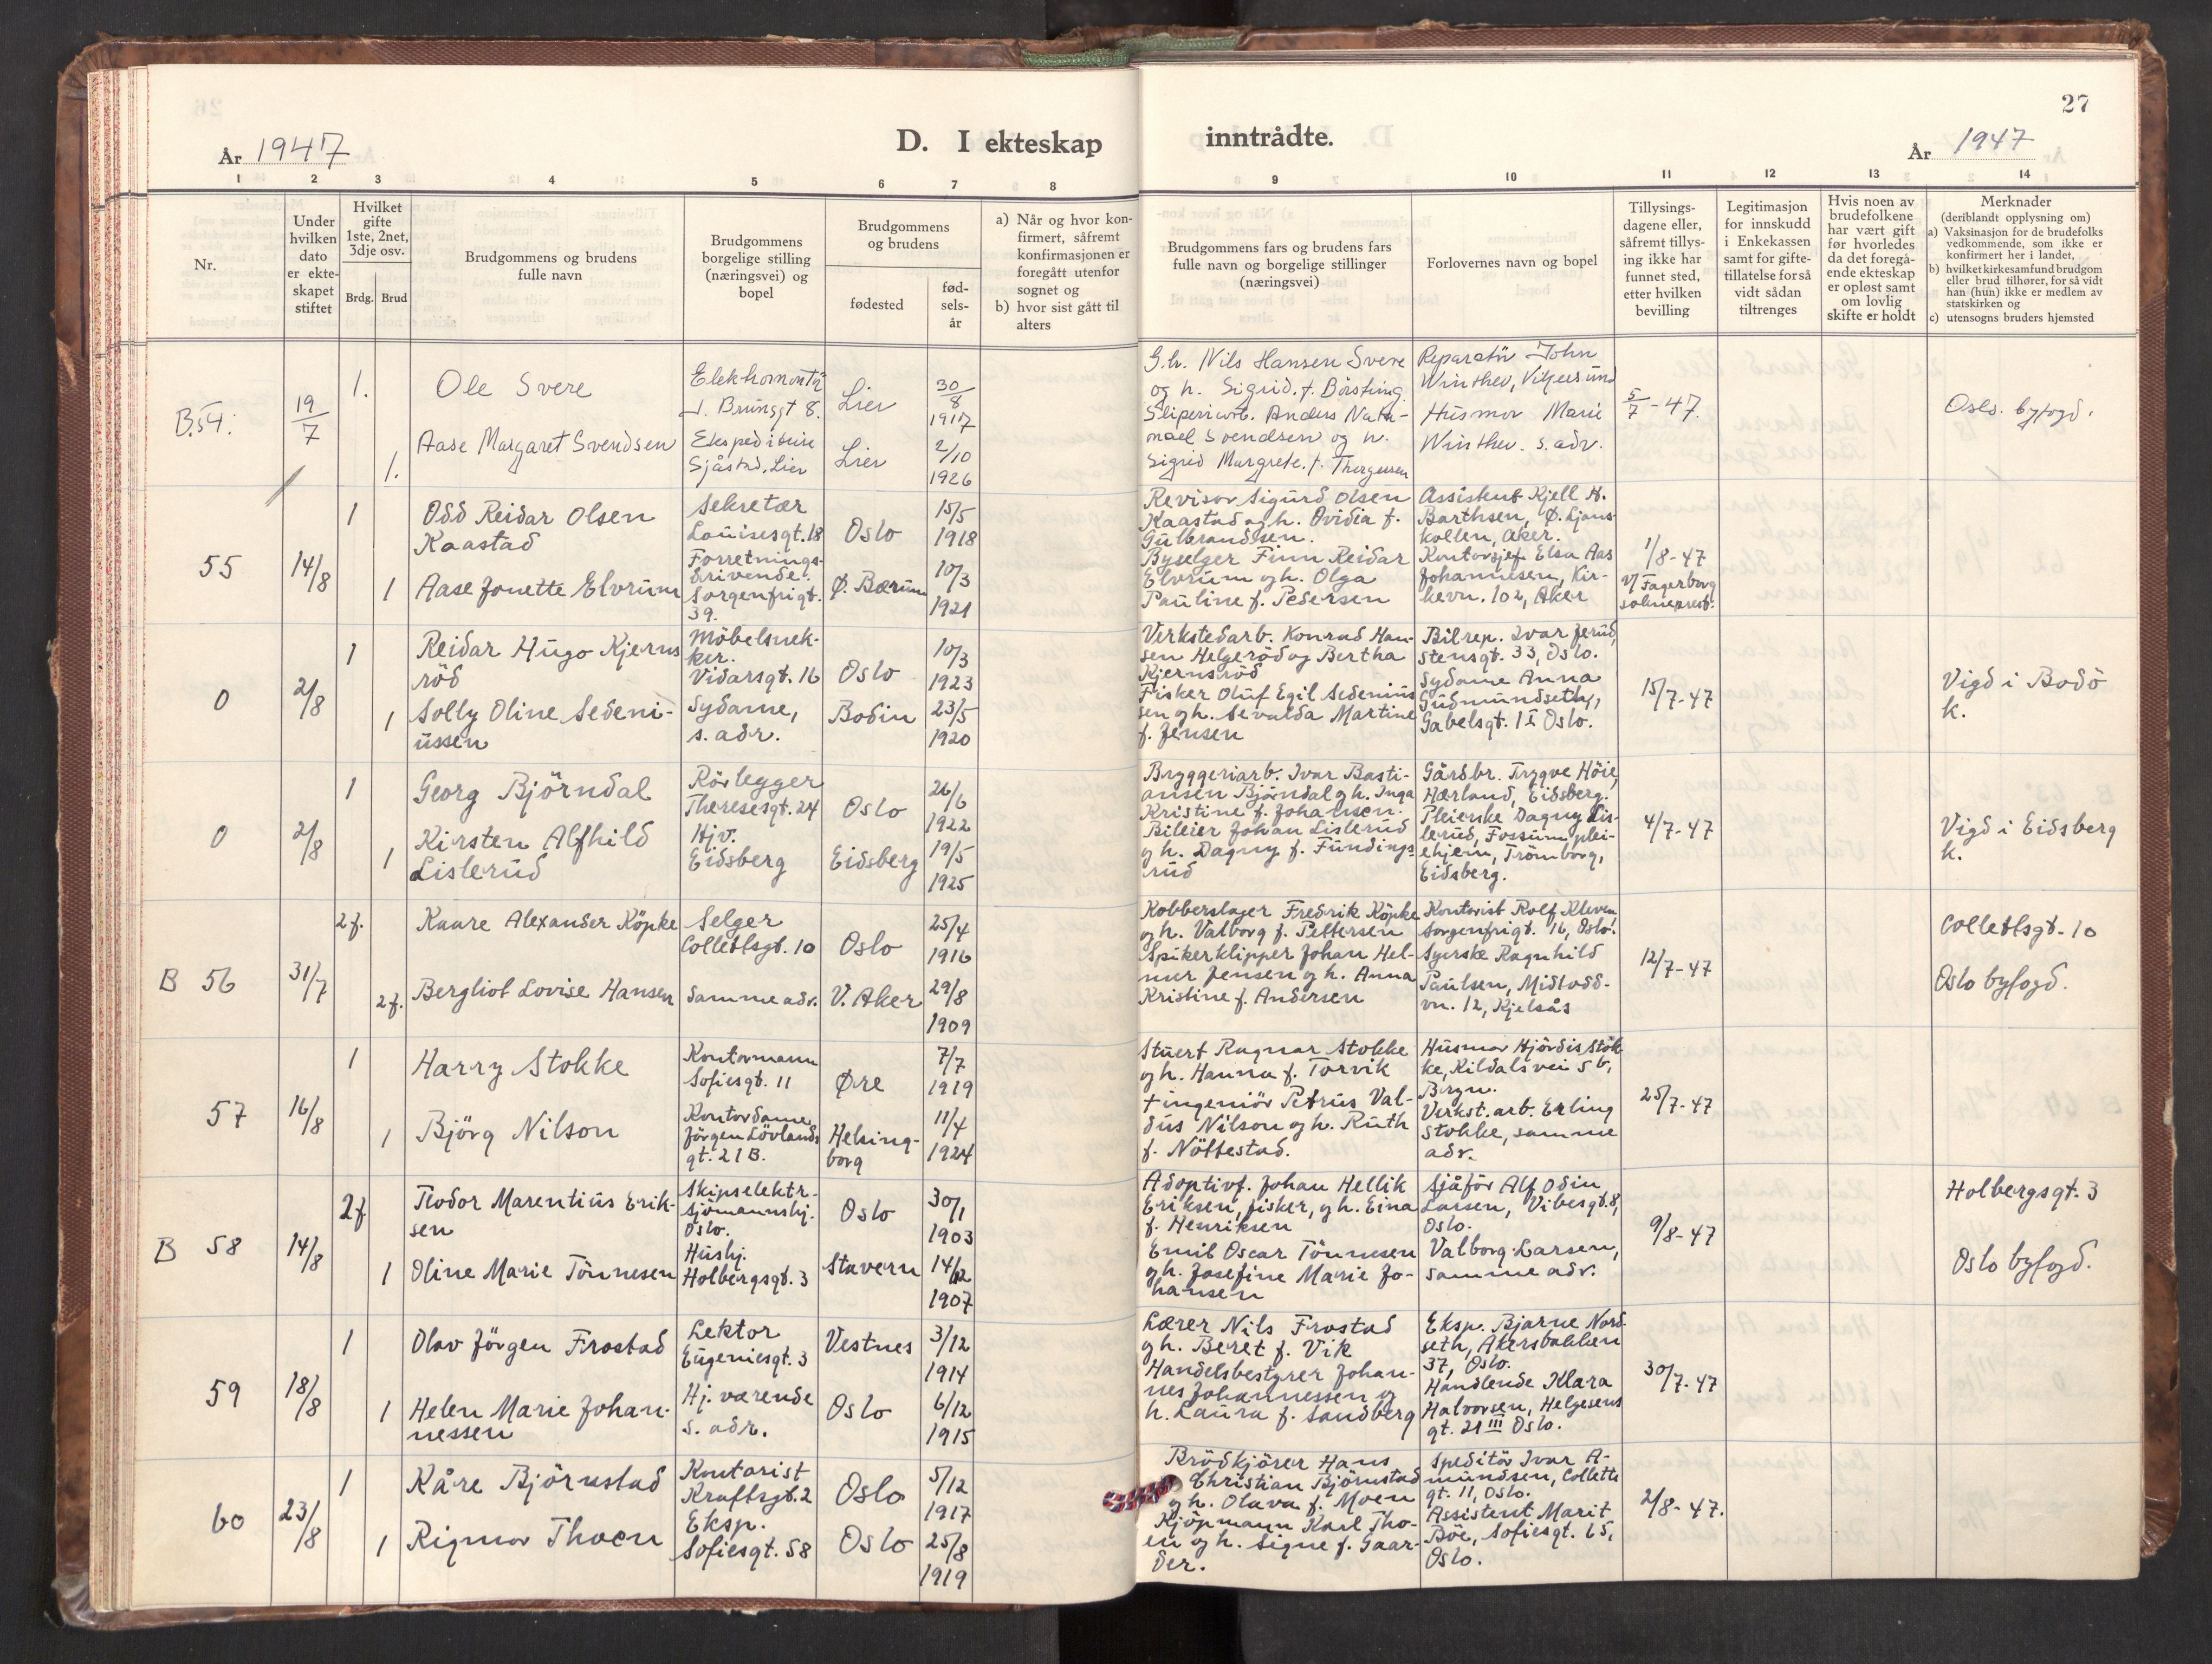 27
År 1947
D. I ekteskap inntrådte.
År 1947
1 2 3 4 5 6 7 8 9 10 11 12 13 14
Nr.
Under
hvilken
dato
er ekte-
skapet
stiftet
Hvilket
gifte
1ste, 2net,
3dje osv.
Brdg. Brud
Brudgommens og brudens
fulle navn
Brudgommens
borgelige stilling
(næringsvei) og
bopel
Brudgommens
og brudens
fødested
fød-
sels-
år
a) Når og hvor kon-
firmert, såfremt
konfirmasjonen er
foregått utenfor
sognet og
b) hvor sist gått til
alters
Brudgommens fars og brudens fars
fulle navn og borgelige stillinger
(næringsvei)
Forlovernes navn og bopel
Tillysings-
dagene eller,
såfremt tillys-
ing ikke har
funnet sted,
etter hvilken
bevilling
Legitimasjon
for innskudd
i Enkekassen
samt for gifte-
tillatelse for så
vidt sådan
tiltrenges
Hvis noen av
brudefolkene
har vært gift
før hvorledes
da det foregå-
ende ekteskap
er opløst samt
om lovlig
skifte er holdt
Merknader
(deriblandt opplysning om)
a) Vaksinasjon for de brudefolks
vedkommende, som ikke er
konfirmert her i landet,
b) hvilket kirkesamfund brudgom
eller brud tilhører, for så vidt
han (hun) ikke er medlem av
statskirken og
c) utensogns bruders hjemsted
B.54.
19/7
1.
Ole Svere
Elektromontör
J. Brunsgt 8.
Lier
30/8
1917
1.
Aase Margaret Svendsen
Ekspeditrise
Sjåstad, Lier
Lier
2/10
1926
G.br. Nils Hansen Svere
og h. Sigrid. f. Börsting.
Sliperiarb. Anders Nata-
nael Svendsen og h.
Sigrid Margrete. f. Thorgersen
Reparatör John
Winther, Vikersund
Husmor Marie
Winther. s. adr.
5/7-47.
Oslo. byfogd.
55
14/8
1
Odd Reidar Olsen
Kaastad
Sekretær
Louisesgt. 18
Oslo
15/5
1918
1
Aase Jonette Elvrum
Forretnings-
drivende.
Sorgenfrigt.
39.
Ø. Bærum
10/3
1921
Revisor Sigurd Olsen
Kaastad og h. Ovidia f.
Gulbrandsen.
Byselger Finn Reidar
Elvrum og h. Olga
Pauline f. Pedersen
Assistent Kjell H.
Barthsen, Ø. Ljans-
kollen, Aker.
Kontorsjef Elsa Aas
Johannesen, Kir-
kevn. 102, Aker
1/8-47
v/ Fagerborg
sokneprest.
0
2/8
1
Reidar Hugo Kjerns
röd
Möbelsnek-
ker.
Vidarsgt. 16
Oslo
10/3
1923
1
Solly Oline Sedeni-
ussen
Sydame,
s. adr.
Bodin
23/5
1920
Verkstedarb. Konrad Han-
sen Helgeröd og Bertha
Kjernsröd
Fisker Oluf Egil Sedenius
sen og h. Sevalda Martine
f. Jensen
Bilrep. Ivar Jerud,
Stensgt. 33, Oslo.
Sydame Anna
Gudmundseth,
Gabelsgt. 1 I Oslo.
15/7-47
Vigd i Bodö
k.
0
2/8
1
Georg Björndal
Rörlegger
Theresesgt. 24
Oslo
26/6
1922
1
Kirsten Alfhild
Lislerud
Hjv.
Eidsberg
Eidsberg
19/5
1925
Bryggeriarb. Ivar Basti-
ansen Björndal og h. Inga
Kristine f. Johansen.
Bileier Johan Lislerud
og h. Dagny f. Fundings-
rud
Gårdbr. Trygve Höie,
Hærland, Eidsberg.
Pleierske Dagny Lis-
lerud, Fossum plei-
ehjem, Trömborg,
Eidsberg.
4/7-47
Vigd i Eidsberg
k.
B 56
31/7
2f.
Kaare Alexander Köpke
Selger
Collettsgt. 10
Oslo
25/4
1916
2f.
Bergliot Lovise Hansen
Samme adr.
V. Aker
29/8
1909
Kobberslager Fredrik Köpke
og h. Valborg f. Pettersen
Spikerklipper Johan Hel-
mer Jensen og h. Anna
Kristine f. Andersen
Kontorist Rolf Kleven,
Sorgenfrigt. 16, Oslo.
Syerske Ragnhild
Paulsen, Midtodd-
vn. 12, Kjelsås
12/7-47
Collettsgt. 10
Oslo byfogd.
57
16/8
1
Harry Stokke
Kontormann
Sofiesgt. 11
Øre
7/7
1919
1
Björg Nilson
Kontordame
Jörgen Lövlands
gt. 21 B.
Helsing-
borg
11/4
1924
Stuert Ragnar Stokke
og h. Hanna f. Torvik
+ ingeniör Petrus Val-
dus Nilson og h. Ruth
f. Nöttestad.
Husmor Hjördis Stok-
ke, Kildalsvei 5 b,
Bryn.
Verkst. arb. Erling
Stokke, samme
adr.
25/7-47
B 58
14/8
2f
Teodor Marentius Erik-
sen
Skipselektr.
Sjömannshj.
Oslo.
Oslo
30/1
1903
1
Oline Marie Tönnesen
Hushj.
Holbergsgt. 3
Stavern
14/12
1907
Adoptivf. Johan Hellik
Eriksen, fisker, og h. Eina
f. Henriksen
Emil Oscar Tönnesen
og h. Josefine Marie Jo-
hansen
Sjåför Alf Odin
Larsen, Vibesgt. 8,
Oslo.
Valborg Larsen,
samme adr.
9/8-47
Holbergsgt. 3
Oslo byfogd.
59
18/8
1
Olav Jörgen Frostad
Lektor
Eugeniesgt. 3
Vestnes
3/12
1914
1
Helen Marie Johan-
nessen
Hj. værende
s. adr.
Oslo
6/12
1915
Lærer Nils Frostad
og h. Beret f. Vik
Handelsbestyrer Johan-
nes Johannessen og
h. Laura f. Sandberg
Eksp. Bjarne Nord-
seth, Akersbakken
37, Oslo.
Handlende Klara
Halvorsen, Helgesens
gt. 21 III Oslo.
30/7-47
60
23/8
1
Kåre Björnstad
Kontorist
Kraftsgt. 2
Oslo
5/12
1917
1
Rigmor Thoen
Eksp.
Sofiesgt. 58
Oslo
25/8
1919
Brödkjörer Hans
Christian Björnstad
og h. Olava f. Moen
Kjöpmann Karl Tho-
en og h. Signe f. Gaar-
der.
Speditör Ivar A-
mundsen, Colletts
gt. 11, Oslo.
Assistent Marit
Böe, Sofiesgt. 65,
Oslo.
2/8-47.